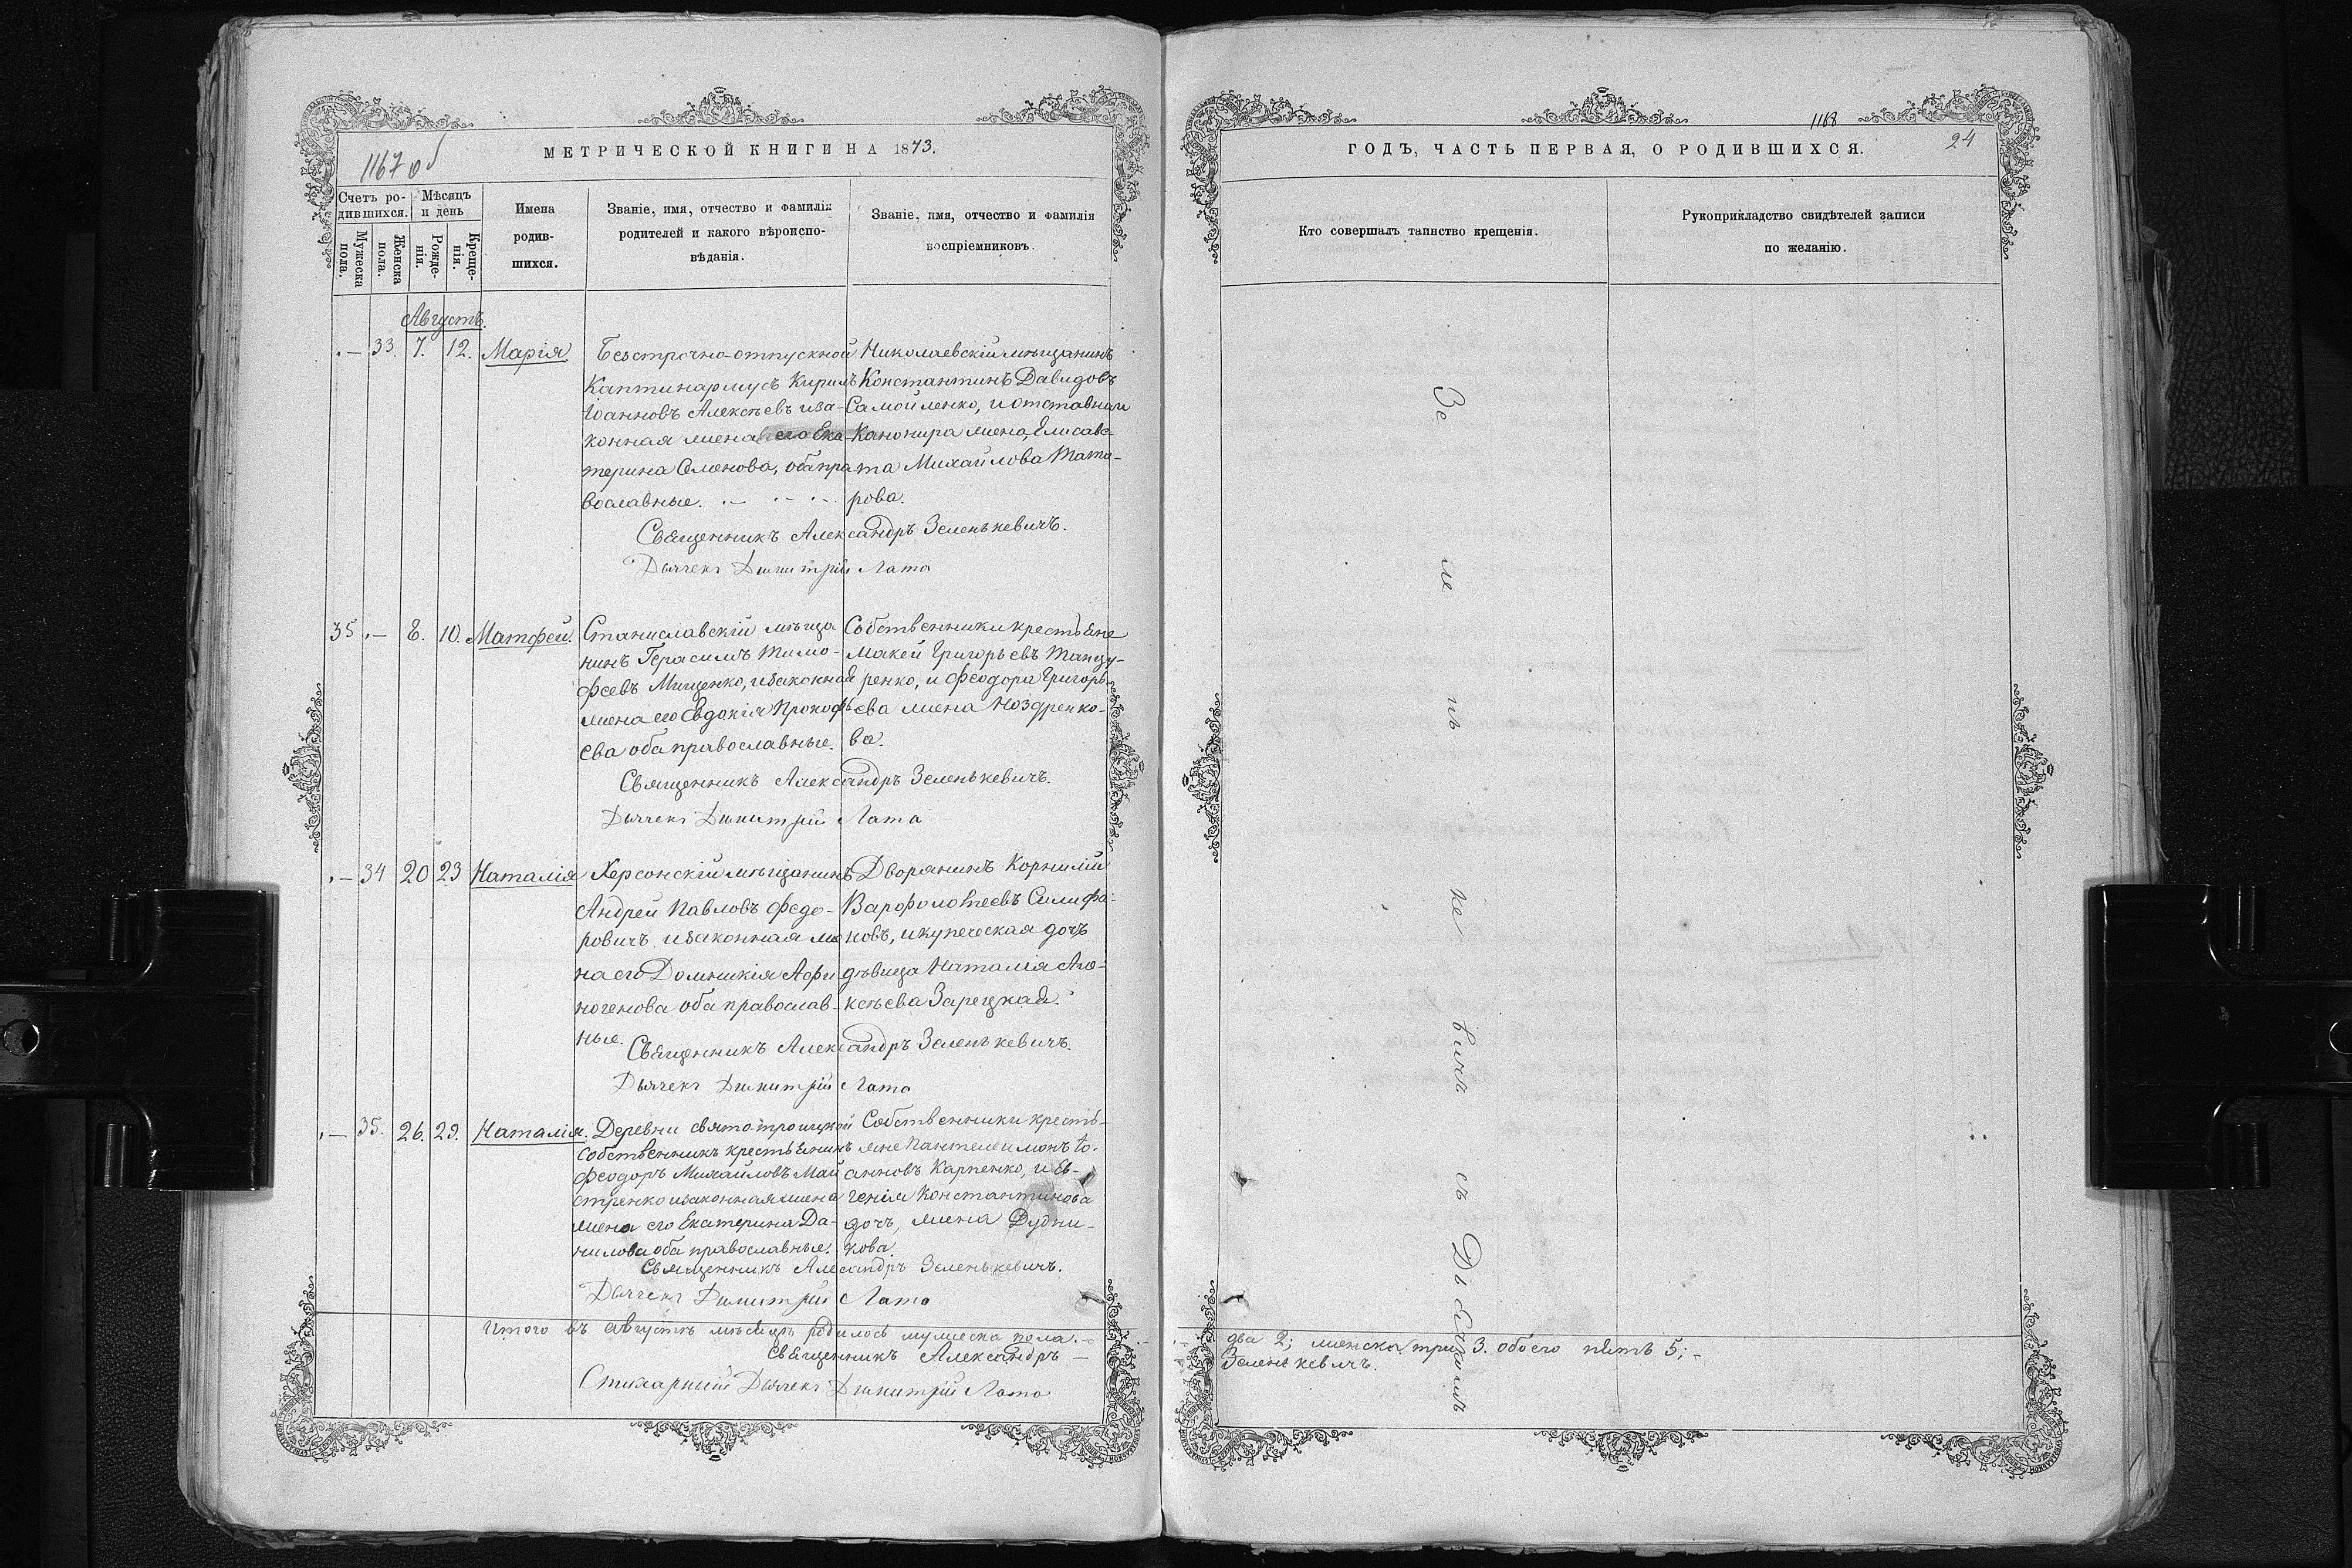 1167 об
МЕТРИЧЕСКОЙ КНИГИ НА 1873.
Счетъ ро-
дившихся.
Мѣсяцъ
и день
Мужеска
пола.
Женска
пола.
Рожде-
нія.
Креще-
нія.
Имена
родив-
шихся.
Званіе, имя, отчество и фамилія
родителей и какого вѣроиспо-
вѣданія.
Званіе, имя, отчество и фамилія
воспріемниковъ.
Августъ.
.— 33. 7. 12. Марія
Безстрочно-отпускной
Каптинармусъ Кирилъ
Іоанновъ Алексѣевъ иза-
конная жена его Ека-
терина Семенова, оба пра-
вославные.
Николаевскій мѣщанинъ
Константинъ Давидовъ
Самойленко, и отставнаго
Канонира жена, Елисаве-
та Михайлова Тата-
рова.
Священникъ Александръ Зеленькевичъ.
Дьячекъ Димитрій Лата
35 .— 8. 10. Матфей.
Станиславскій мѣща
нинъ Герасимъ Тимо-
феевъ Мищенко, изаконная
жена его Евдокія Прокофь
ева оба православные.
Собственники крестьяне
Макей Григорьевъ Танцу-
ренко, и Феодора Григорь-
ева жена Ноздренко-
ва.
Священникъ Александръ Зеленькевичъ.
Дьячекъ Димитрій Лата
.— 34 20 23 Наталія
Херсонскій мѣщанинъ
Андрей Павловъ Федо-
ровичъ изаконная же
на его Домникія Афи
ногенова оба православ-
ные.
Дворянинъ Корнилій
Варфоломеевъ Силифа-
новъ, и купеческая дочь
дѣвица Наталія Але-
ксѣева Зарецкая.
Священникъ Александръ Зеленькевичъ.
Дьячекъ Димитрій Лата
.— 35. 26. 29. Наталія.
Деревни святотроицкой
собственникъ крестьянинъ
Феодоръ Михайловъ Май
стренко изаконная жена
жена его Екатерина Да-
нилова оба православные.
Собственники кресть-
яне Пантелеимонъ Іо-
анновъ Карпенко, и Ев-
генія Константинова
дочь, жена Дудни-
кова.
Священникъ Алесандръ Зеленькевичъ.
Дьячекъ Димитрій Лата
Итого въ августѣ мѣсяцѣ родилось мужеска пола.—
Священникъ Александръ —
Стихарный Дьячекъ Димитрій Лата
1168
24
ГОДЪ, ЧАСТЬ ПЕРВАЯ, О РОДИВШИХСЯ.
Кто совершалъ таинство крещенія.
Рукоприкладство свидѣтелей записи
по желанію.
Зе ле нь ке вичъ съ Діакономъ
два 2; женска три 3. обоего пять 5;-
Зеленькевичъ.